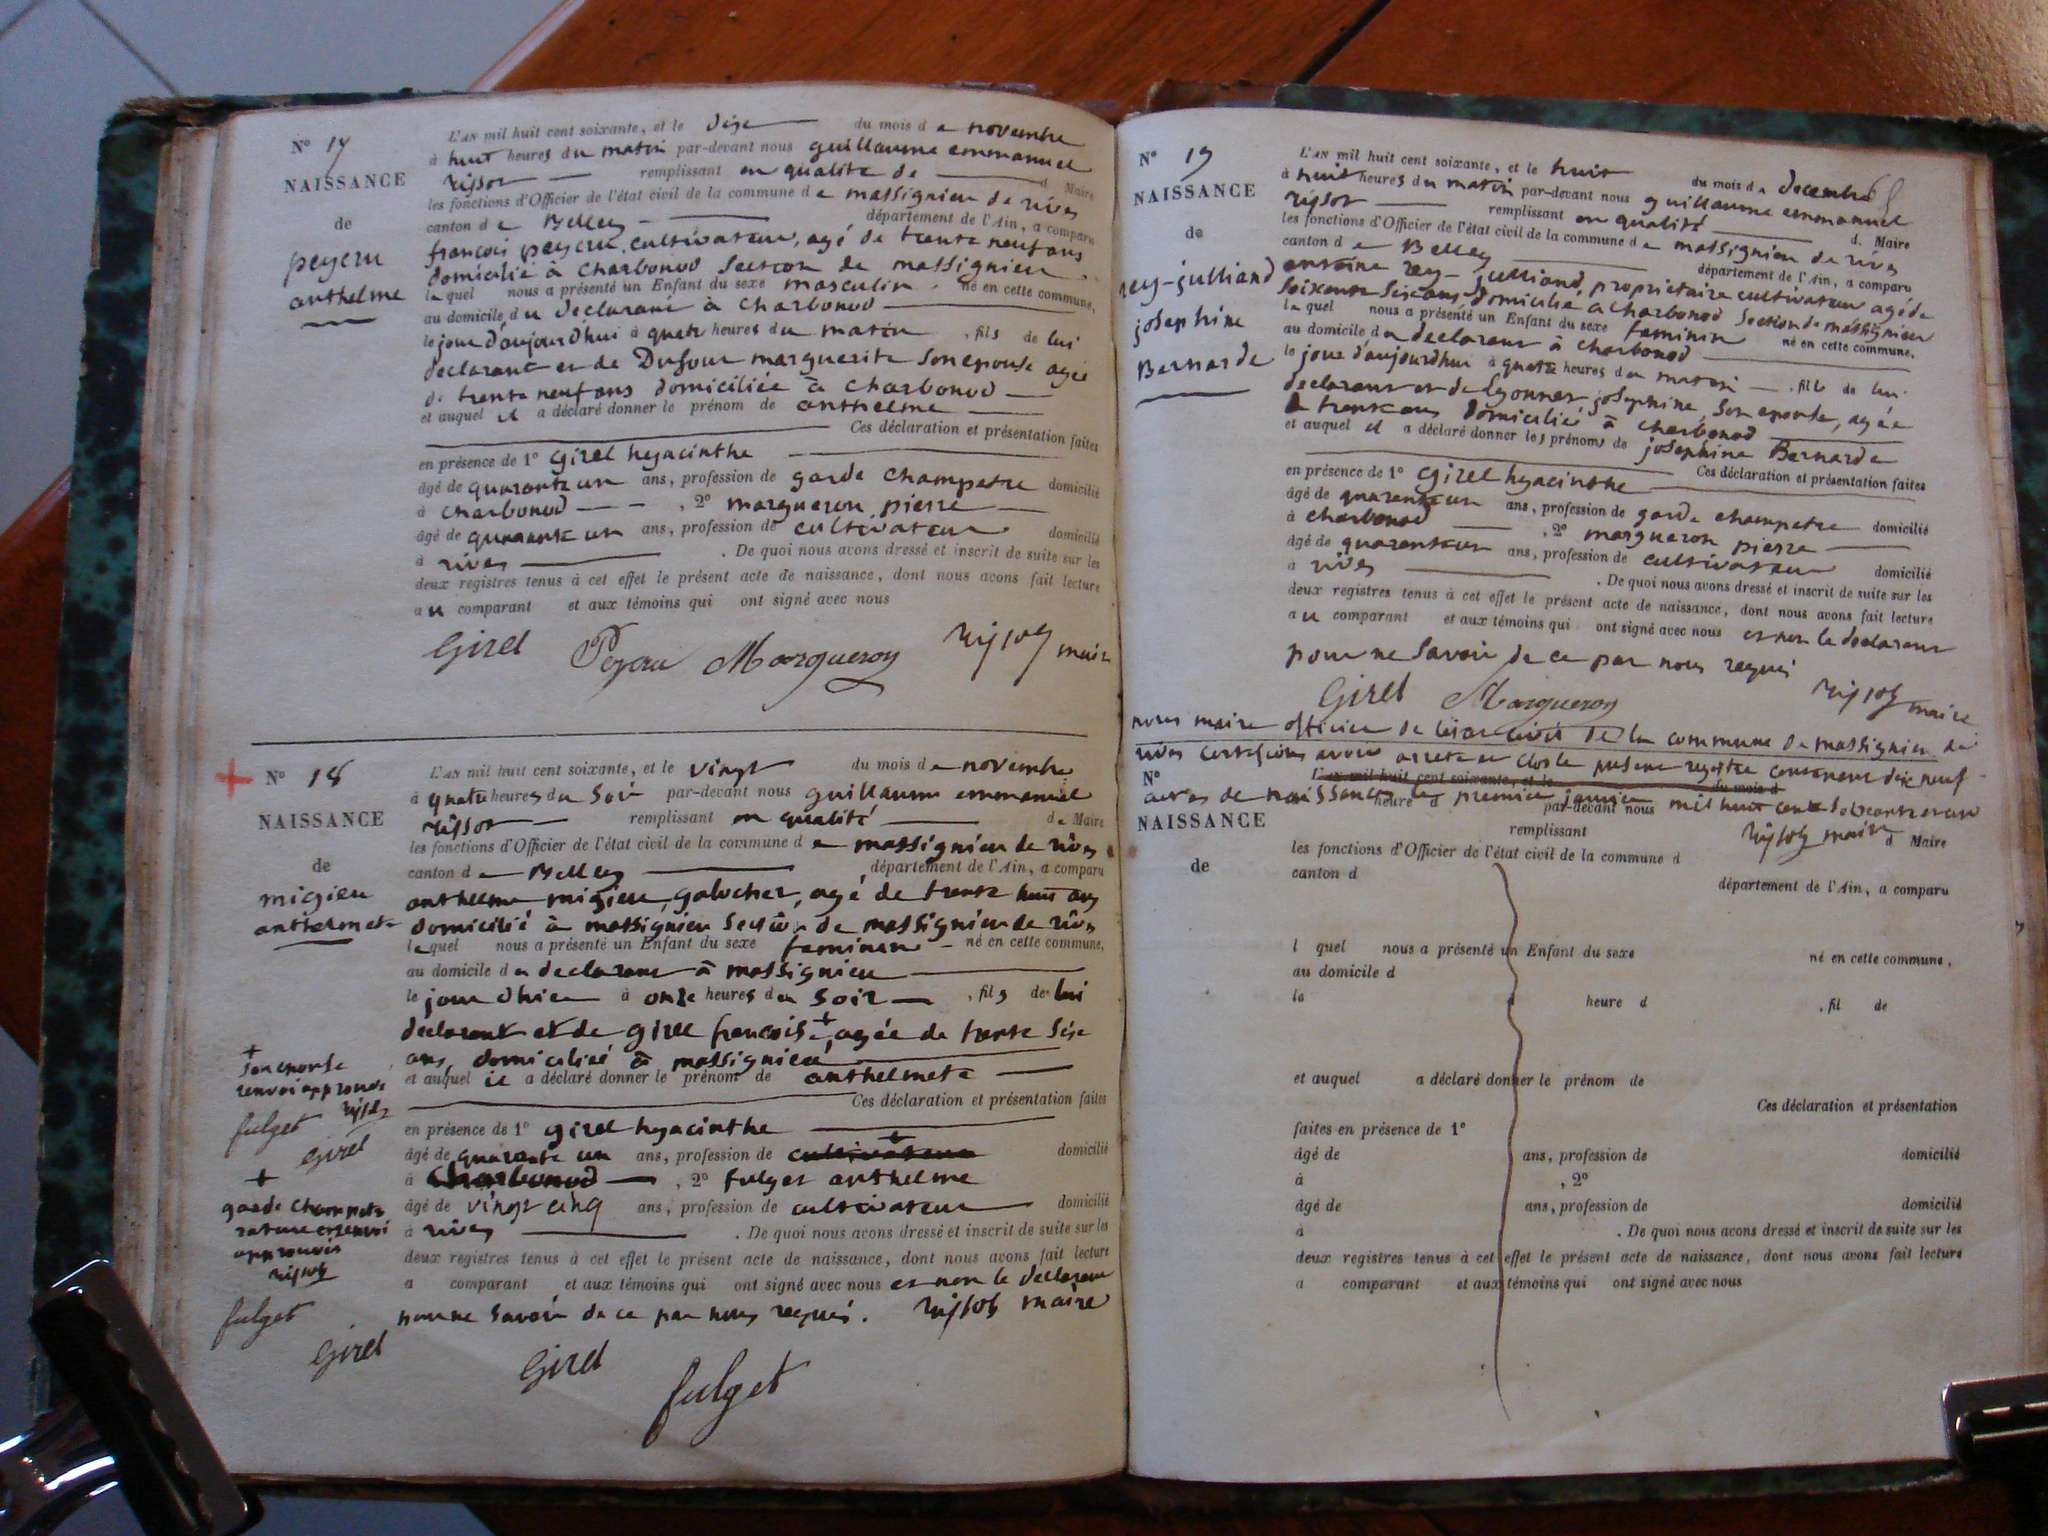 N° 17
NAISSANCE
de
peycru
anthelme
L'AN mil huit cent soixante, et le dixe du mois de novembre
à huit heures du matin par-devant nous guillaume emmanuel
rissot remplissant en qualité de d Maire
les fonctions d'Officier de l'état civil de la commune de massignieu de rives
canton de Belley département de l'Ain, a comparu
françois peycru cultivateur, agé de trente neuf ans
domicilié à charbonod section de massignieu
lequel nous a présenté un Enfant du sexe masculin né en cette commune,
au domicile du declarant à charbonod
le jour d'aujourdhui à quatre heures du matin, fils de lui
declarant et de Dufour marguerite son epouse agée
de trente neuf ans domiciliée à charbonod
et auquel il a déclaré donner le prénom de anthelme
Ces déclaration et présentation faites
en présence de 1° girel hyacinthe
âgé de quarante un ans, profession de garde champetre domicilié
à charbonod, 2° margueron pierre
âgé de quarante un ans, profession de cultivateur domicilié
à rives. De quoi nous avons dressé et inscrit de suite sur les
deux registres tenus à cet effet le présent acte de naissance, dont nous avons fait lecture
au comparant et aux témoins qui ont signé avec nous
Girel Peycru Margueron rissot maire
N° 18
NAISSANCE
de
migieu
anthelmete
L'AN mil huit cent soixante, et le vingt du mois de novembre
à quatre heures du soir par-devant nous guillaume emmanuel
rissot remplissant en qualité de Maire
les fonctions d'Officier de l'état civil de la commune de massignieu de rives
canton de Belley département de l'Ain, a comparu
anthelme migieu galocher, agé de trente huit ans
domicilié à massignieu section de massignieu de rives
lequel nous a présenté un Enfant du sexe feminin né en cette commune,
au domicile du declarant à massignieu
le jour dhier à onze heures du soir, fils de lui
declarant et de girel françoise + agée de trente sise
ans, domiciliée à massignieu
et auquel il a déclaré donner le prénom de anthelmete
Ces déclaration et présentation faites
en présence de 1° girel hyacinthe
âgé de quarante un ans, profession de cultivateur + domicilié
à Charbonod, 2° fulget anthelme
âgé de vingt cinq ans, profession de cultivateur domicilié
à rives. De quoi nous avons dressé et inscrit de suite sur les
deux registres tenus à cet effet le présent acte de naissance, dont nous avons fait lecture
a comparant et aux témoins qui ont signé avec nous et non le declarant
pour ne savoir de ce par nous requis. rissot maire
Girel
fulget
+
son epouse
renvoi approuvé
fulget rissot
Girel
+
garde champetre
rature et renvoi
approuvés
rissot
fulget
Girel
N° 19
NAISSANCE
de
rey-julliand
josephine
Bernarde
L'AN mil huit cent soixante, et le huit du mois de decembre
à huit heures du matin par-devant nous guillaume emmanuel
rissot remplissant en qualité d. Maire
les fonctions d'Officier de l'état civil de la commune de massignieu de rives
canton de Belley département de l'Ain, a comparu
antoine rey-julliand, proprietaire cultivateur agé de
soixante six ans domicilié a charbonod section de massignieu
lequel nous a présenté un Enfant du sexe feminin né en cette commune,
au domicile du declarant à charbonod
le jour d'aujourdhui à quatre heures du matin, fille de lui
declarant et de Leyonnet josephine son epouse, agée
de trente ans domiciliée à charbonod
et auquel il a déclaré donner les prénoms de josephine Bernarde
Ces déclaration et présentation faites
en présence de 1° girel hyacinthe
âgé de quarante un ans, profession de garde champetre domicilié
à charbonod, 2° margueron pierre
âgé de quarante un ans, profession de cultivateur domicilié
à rives. De quoi nous avons dressé et inscrit de suite sur les
deux registres tenus à cet effet le présent acte de naissance, dont nous avons fait lecture
au comparant et aux témoins qui ont signé avec nous et non le declarant
pour ne savoir de ce par nous requis
Girel Margueron rissot maire
nous maire officier de l'état civil de la commune de massignieu de
rives certifions avoir arreté et clos le present registre contenant dix neuf
actes de naissances le premier janvier mil huit cent soixante et un
rissot maire
N°
NAISSANCE
de
L'AN mil huit cent soixante, et le du mois d
heure d par-devant nous
remplissant d Maire
les fonctions d'Officier de l'état civil de la commune d
canton d département de l'Ain, a comparu
l quel nous a présenté un Enfant du sexe né en cette commune,
au domicile d
le à heure d, fil de
et auquel a déclaré donner le prénom de
Ces déclaration et présentation
faites en présence de 1°
âgé de ans, profession de domicilié
à, 2°
âgé de ans, profession de domicilié
à. De quoi nous avons dressé et inscrit de suite sur les
deux registres tenus à cet effet le présent acte de naissance, dont nous avons fait lecture
a comparant et aux témoins qui ont signé avec nous